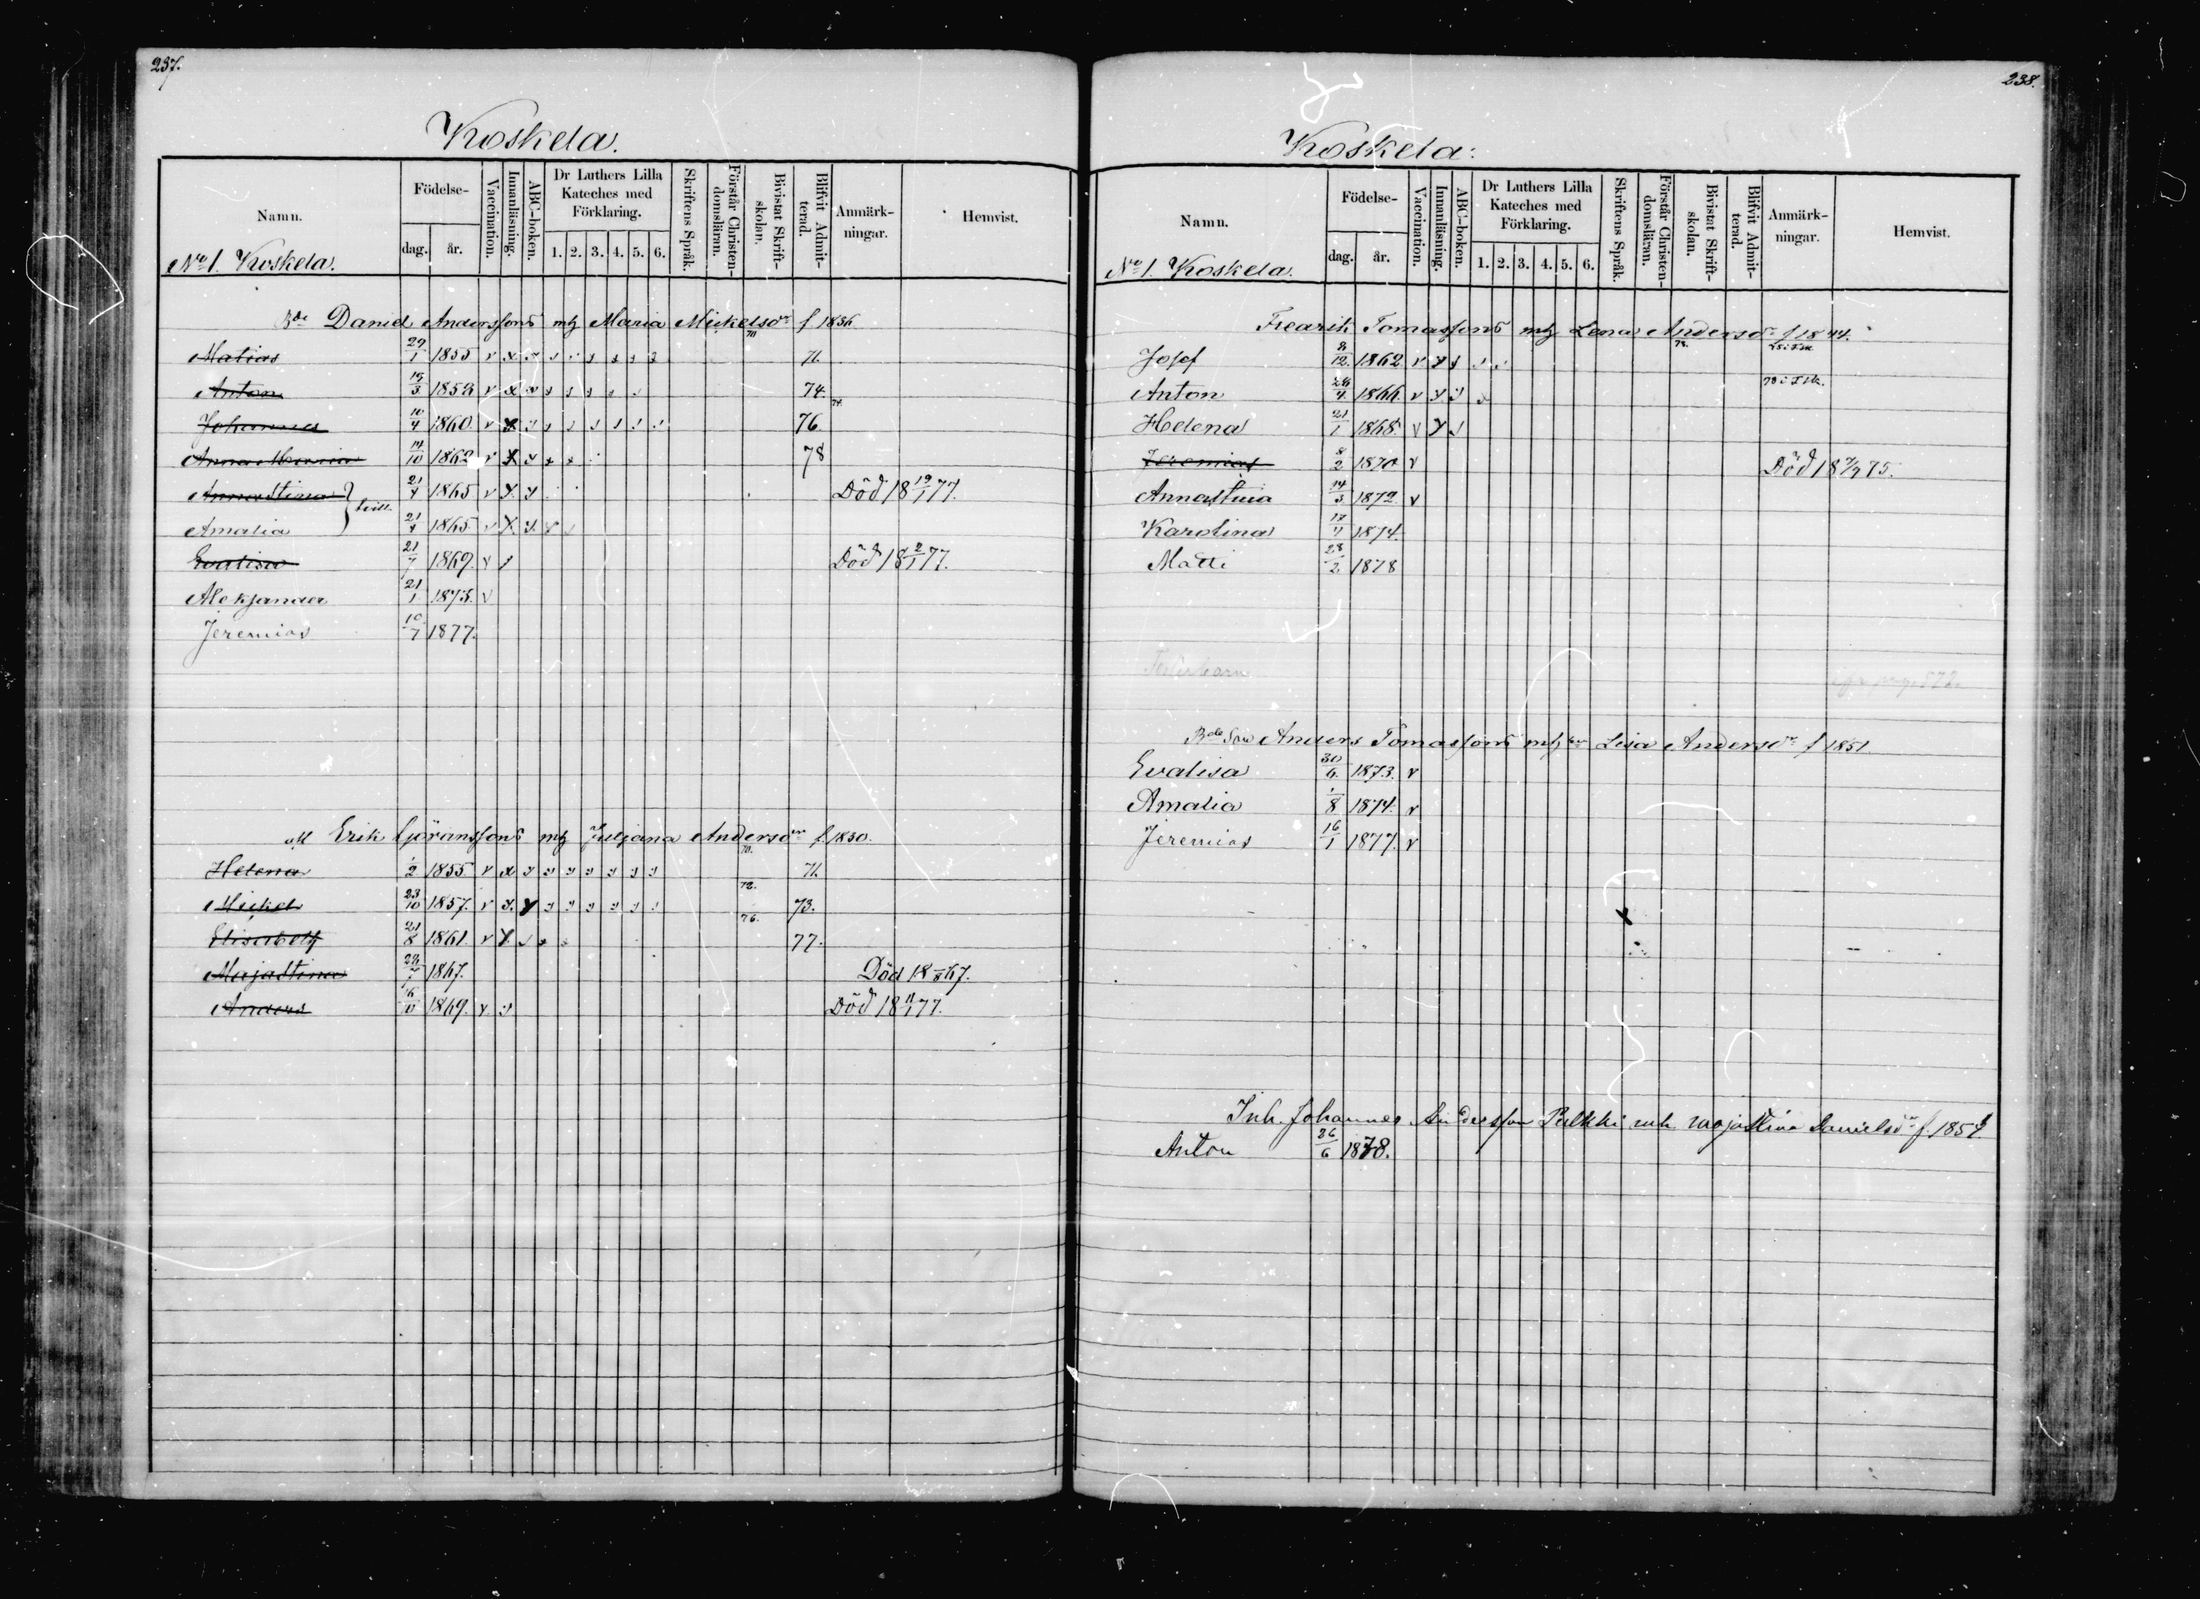 237.
Koskela.
Namn.
Födelse-
dag. år.
Vaccination.
Innanläsning.
ABC-boken.
Dr Luthers Lilla Kateches med Förklaring.
1. 2. 3. 4. 5. 6.
Skriftens Språk.
Förstår Christen-domsläran.
Bivistat Skrift-skolan.
Blifvit Admit-terad.
Anmärk-ningar.
Hemvist.
No 1. Koskela.
Bde Daniel Anderssons mh Maria Mickelsdr f 1836
Matias 29/1 1855 71.
Anton 1859 74.
Johannes 10/4 1860 76
Anna Maria 14/10 1862 78
Annastina 21/4 1865 tvill. Död 18 19/1 77.
Amalia 21/4 1865
Evalisa 21/7 1869 Död 18 2/1 77.
Aleksander 21/1 1875
Jeremias 10/7 1877.
Erik Göranssons mh Juljana Andersdr f. 1830.
Helena 1/2 1855 71.
Mickel 23/10 1857. 72. 73.
Elisabeth 21/8 1861 76. 77.
Majastina 1867. Död 18 67.
Anders 16/10 1869. Död 18 11/1 77.
238.
Koskela.
Namn.
Födelse-
dag. år.
Vaccination.
Innanläsning.
ABC-boken.
Dr Luthers Lilla Kateches med Förklaring.
1. 2. 3. 4. 5. 6.
Skriftens Språk.
Förstår Christen-domsläran.
Bivistat Skrift-skolan.
Blifvit Admit-terad.
Anmärk-ningar.
Hemvist.
No 1. Koskela.
Fredrik Tomassons mh Lena Andersdr f 1844.
Josef 1862
Anton 1866
Helena 21/1 1868
Jeremias 8/2 1870 Död 18 75.
Annastina 14/3 1872
Karolina 1874
Matti 28/2 1878
Bde Son Anders Tomassons mh Lisa Andersdr f 1851
Evalisa 30/6 1873.
Amalia 1/8 1874
Jeremias 16/1 1877.
Inh. Johannes Andersson Pulkki mh Majastina Danielsdr f.
Anton 26/6 1878.